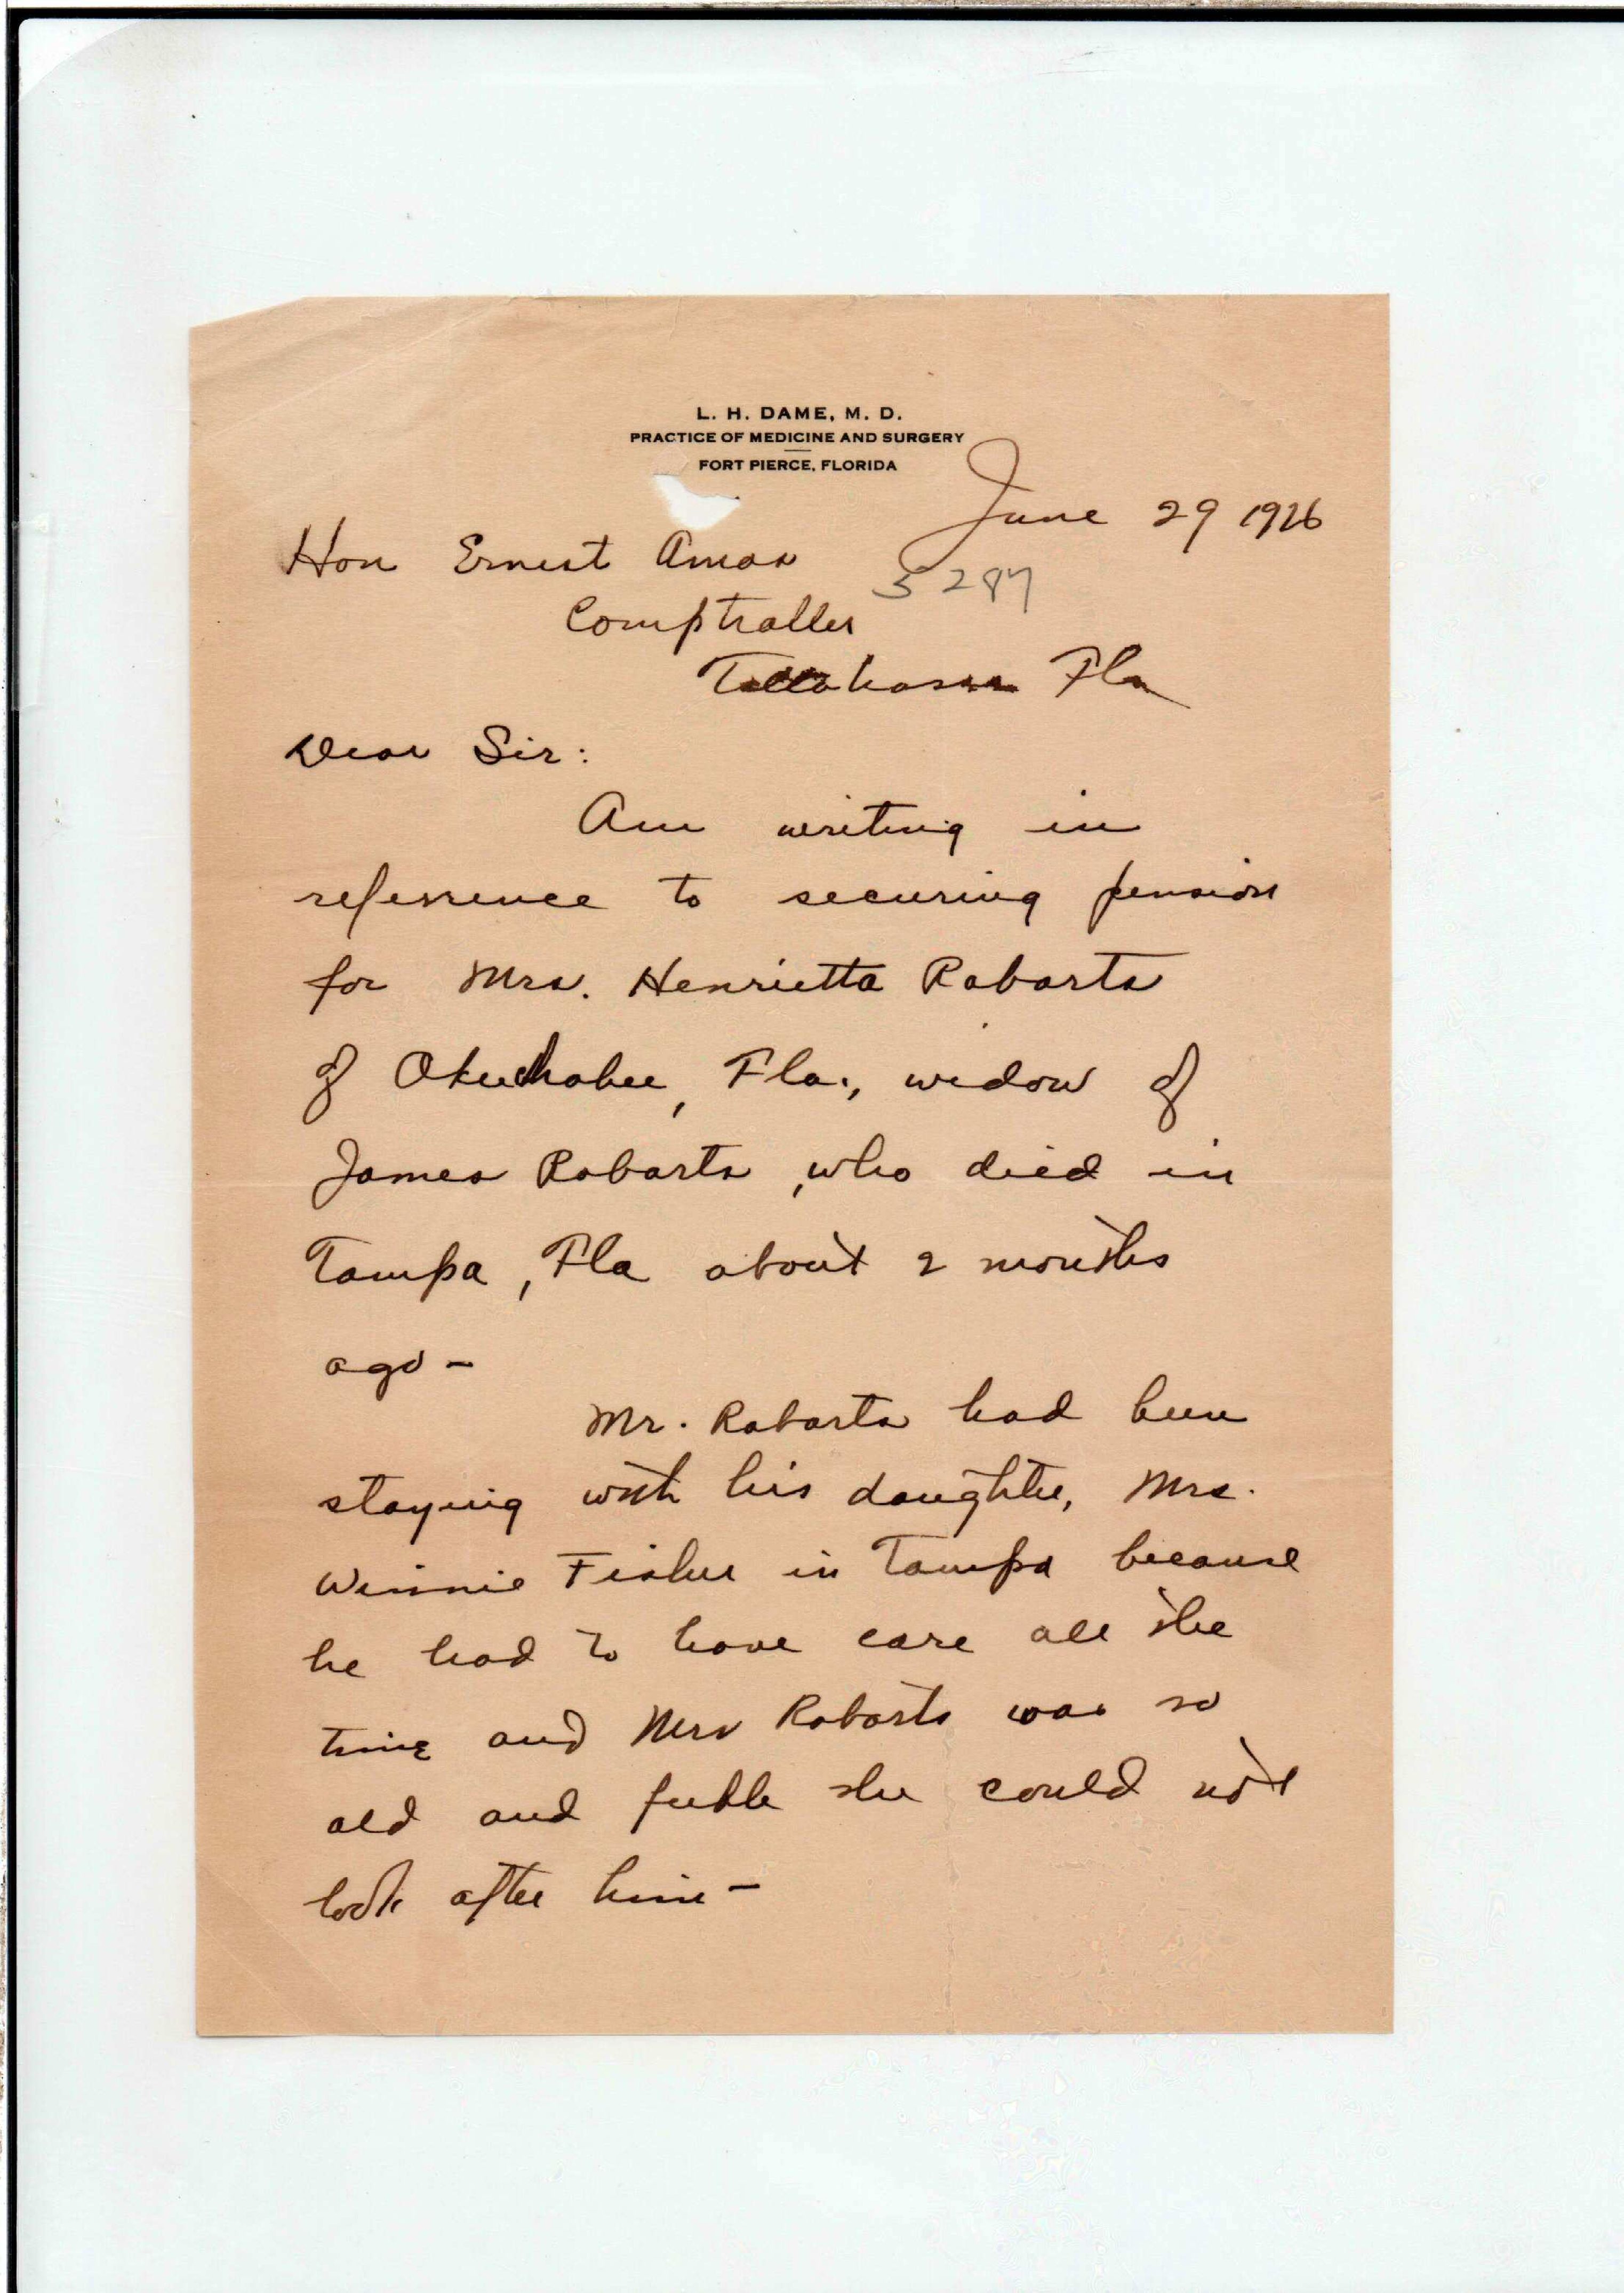 L. H. DAME, M. D.
PRACTICE OF MEDICINE AND SURGERY
FORT PIERCE, FLORIDA
June 29 1926
Hon Ernest Amos
5287
Comptroller
Tallahassee Fla
Dear Sir:
Am writing in
referrence to securing pension
for Mrs. Henrietta Robarts
of Okeechobee, Fla., widow of
James Robarts, who died in
Tampa, Fla about 2 months
ago -
Mr. Robarts had been
staying with his daughter, Mrs.
Winnie Fisher in Tampa because
he had to have care all the
time and Mrs Robarts was so
old and feeble she could not
look after him -